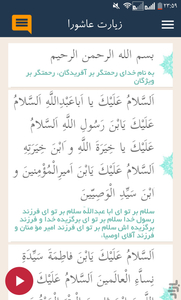 ۲۳:۵۹
زیارت عاشورا
بسم الله الرحمن الرحیم
به نام خدای رحمتگر بر آفریدگان، رحمتگر بر
ویژگان
اَلسَّلامُ عَلَيْكَ يا اَباعَبْدِاللَّهِ اَلسَّلامُ
عَلَيْكَ يَابْنَ رَسُولِ اللَّهِ اَلسَّلامُ
عَلَيْكَ يا خِيَرَةَ اللَّهِ و َابْنَ خِيَرَتِهِ
اَلسَّلامُ عَلَيْكَ يَابْنَ اَميرِالْمُؤْمِنينَ و
َابْنَ سَيِّدِ الْوَصِيّينَ
سلام بر تو ای ابا عبدالله سلام بر تو ای فرزند
رسول خدا سلام بر تو ای
برگزیده اش سلام بر تو ای فرزند امیر مؤ منان و
فرزند آقای اوصیا،
اَلسَّلامُ عَلَيْكَ يَابْنَ فاطِمَةَ سَيِّدَةِ
نِساَّءِ الْعالَمينَ اَلسَّلامُ عَلَيْكَ